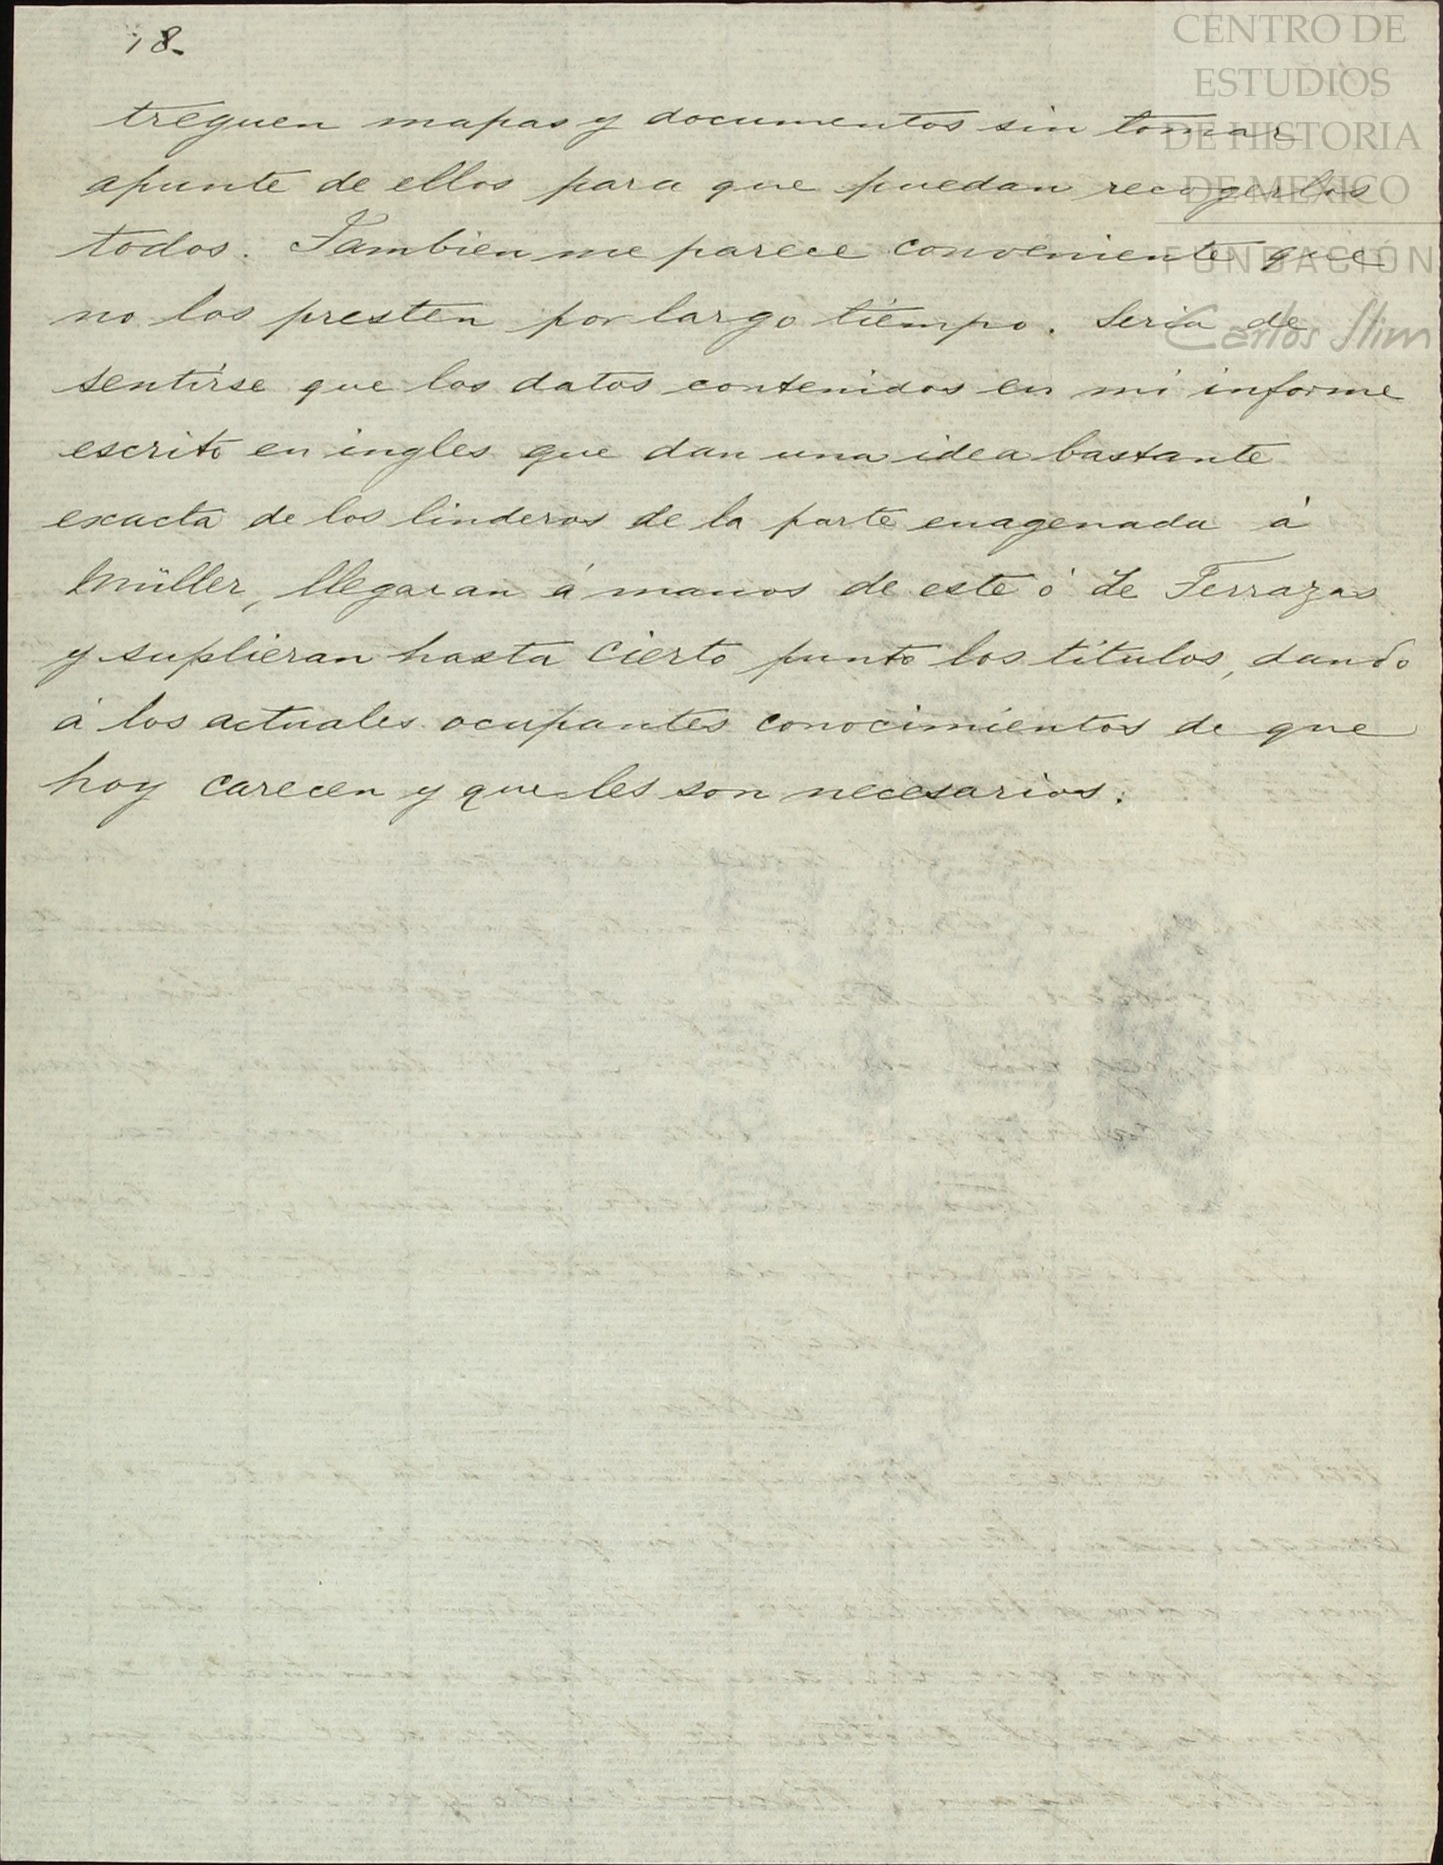 18.
CENTRO DE
ESTUDIOS
DE HISTORIA
DE MEXICO
FUNDACIÓN
Carlos Slim
treguen mapas y documentos sin tomar
apunte de ellos para que puedan recogerlos
todos. Tambien me parece conveniente que
no los presten por largo tiempo. Seria de
sentirse que los datos contenidos en mi informe
escrito en ingles que dan una idea bastante
exacta de los linderos de la parte enagenada á
Müller, llegaran á manos de este ó de Terrazas
y suplieran hasta cierto punto los titulos, dando
á los actuales ocupantes conocimientos de que
hoy carecen y que les son necesarios.